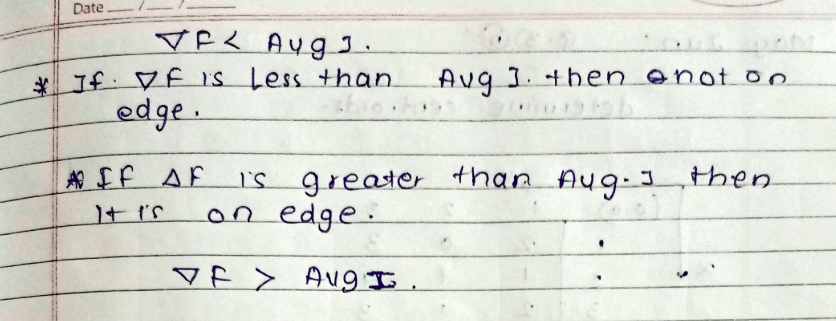 Date
∇F < Avg I.
* If. ∇F is Less than Avg I. then not on
edge.
* If ΔF is greater than Avg. I then
It is on edge.
∇F > Avg I.